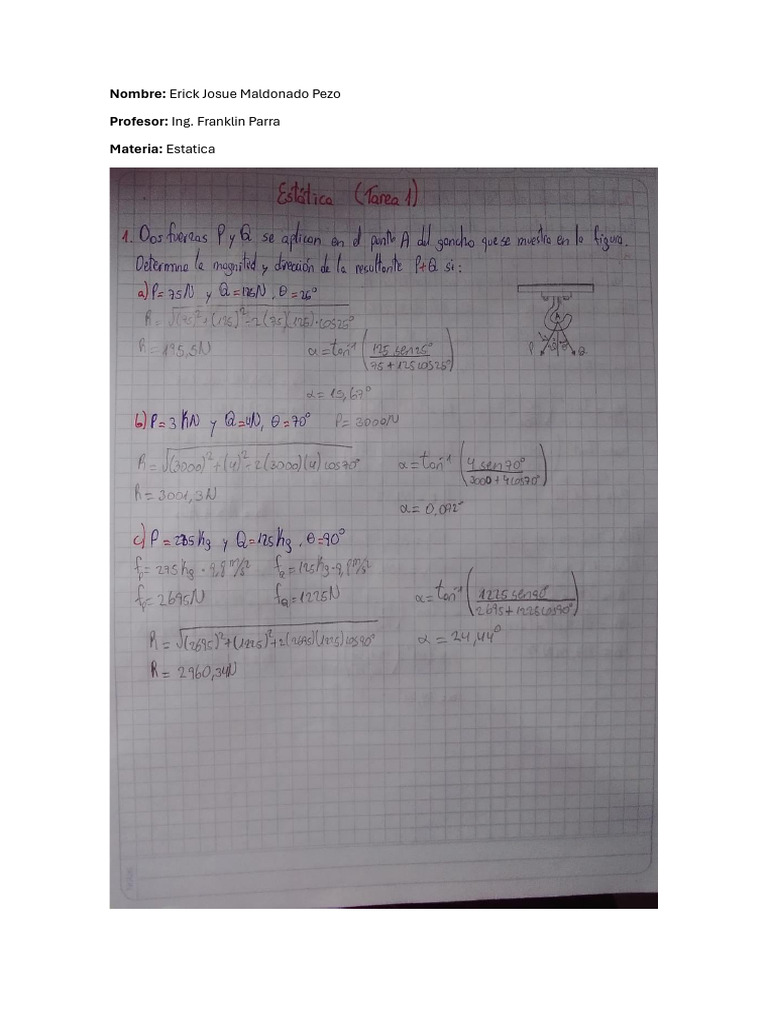 Nombre: Erick Josue Maldonado Pezo
Profesor: Ing. Franklin Parra
Materia: Estatica
Estática (Tarea 1)
1. Dos fuerzas P y Q se aplican en el punto A del gancho que se muestra en la figura.
Determina la magnitud y dirección de la resultante P+Q si:
a) P=75N y Q=125N, θ=25°
R=√(75)²+(125)²-2(75)(125)·cos25°
R=195,5N
α=tan⁻¹(125 sen25° / 75+125cos25°)
α=15,67°
A
P Q
b) P=3KN y Q=4N, θ=70° P=3000N
R=√(3000)²+(4)²-2(3000)(4)cos70°
R=3001,3N
α=tan⁻¹(4 sen70° / 3000+4cos70°)
α=0,072°
c) P=275Kg y Q=125Kg, θ=90°
fp=275Kg·9,8m/s² fQ=125Kg·9,8m/s²
fp=2695N fQ=1225N
α=tan⁻¹(1225 sen90° / 2695+1225cos90°)
R=√(2695)²+(1225)²+2(2695)(1225)cos90°
α=24,44°
R=2960,34N